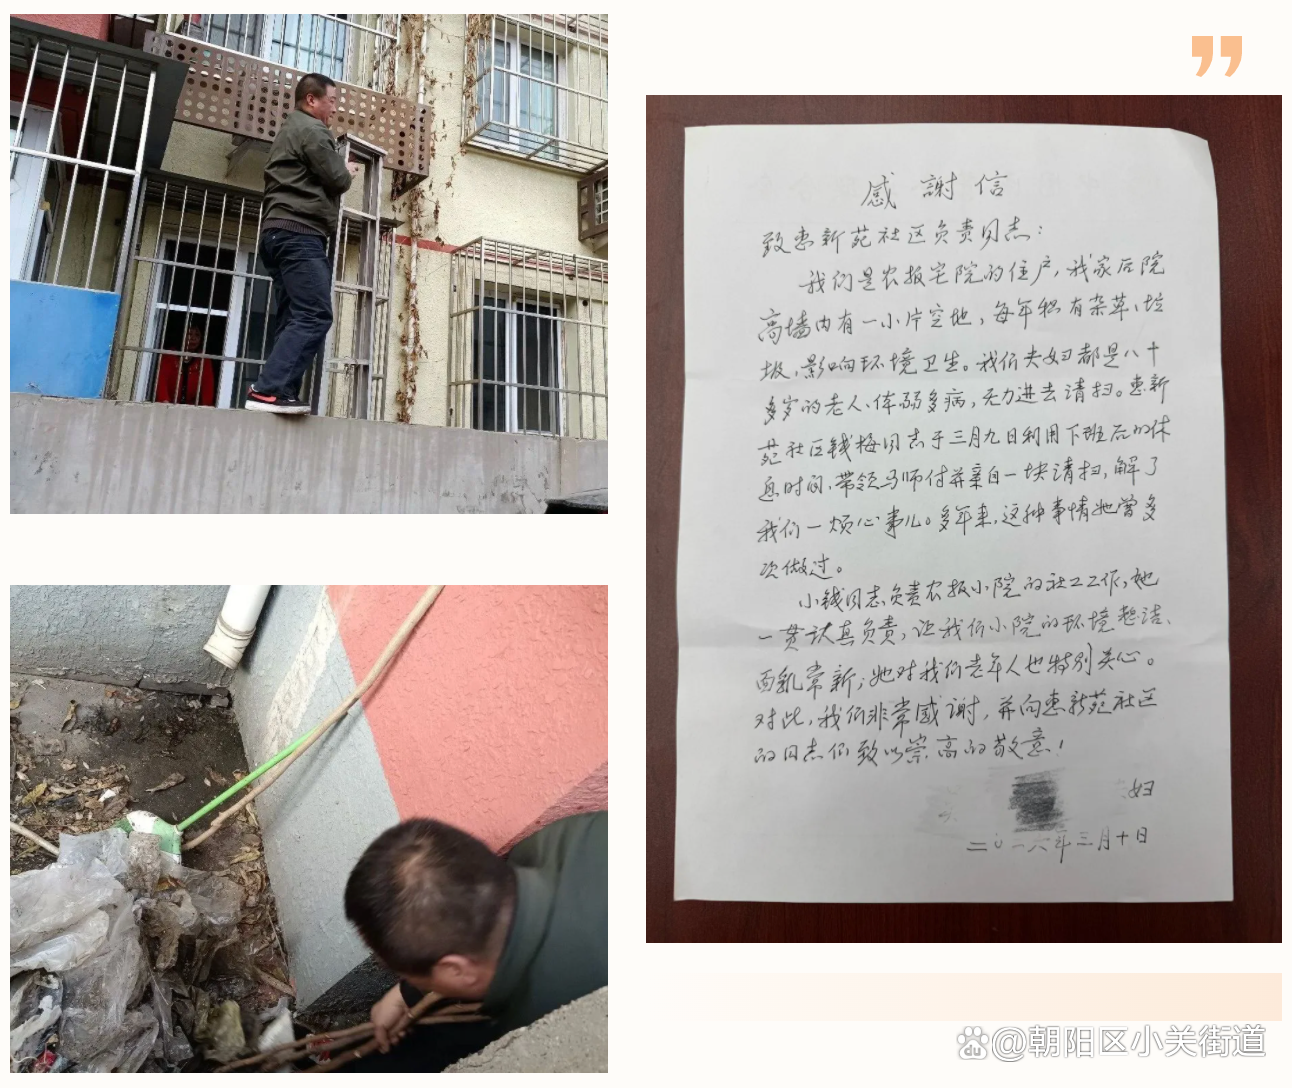 感謝信
致惠新苑社区负责同志：
我们是农报宅院的住户，我家后院
高墙内有一小片空地，每年积有杂草、垃
圾，影响环境卫生。我们夫妇都是八十
多岁的老人、体弱多病，无力进去清扫。惠新
苑社区钱梅同志于三月九日利用下班后的休
息时间、带领马师付并亲自一块请扫，解了
我们一烦心事儿。多年来，这种事情她曾多
次做过。
小钱同志负责农报小院的社工工作，她
一贯认真负责，让我们小院的环境整洁、
面貌常新；她对我们老年人也特别关心。
对此，我们非常感谢，并向惠新苑社区
的同志们致以崇高的敬意！
妇
二〇二六年三月十日
@朝阳区小关街道